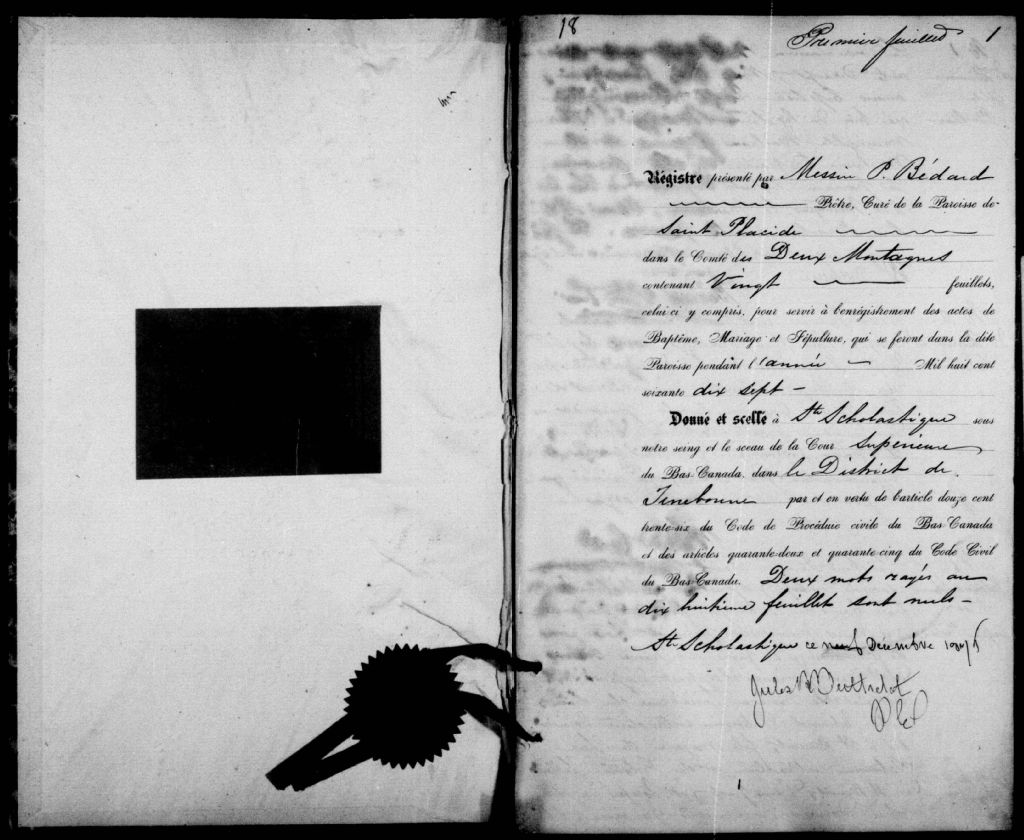 18
Premier feuillet 1
Régistre présenté par Messire P. Bédard
Prêtre, Curé de la Paroisse de
Saint Placide
dans le Comté des Deux Montagnes
contenant Vingt feuillets,
celui-ci y compris, pour servir à l'enrégistrement des actes de
Baptême, Mariage et Sépulture, qui se feront dans la dite
Paroisse pendant l'année — Mil huit cent
soixante dix sept —
Donné et scellé à Ste Scholastique sous
notre seing et le sceau de la Cour Supérieure
du Bas-Canada, dans le District de
Terrebonne par et en vertu de l'article douze cent
trente-six du Code de Procédure civile du Bas-Canada
et des articles quarante-deux et quarante-cinq du Code Civil
du Bas-Canada. Deux mots rayés au
dix huitième feuillet sont nuls —
Ste Scholastique ce neuf Décembre
Jules
1